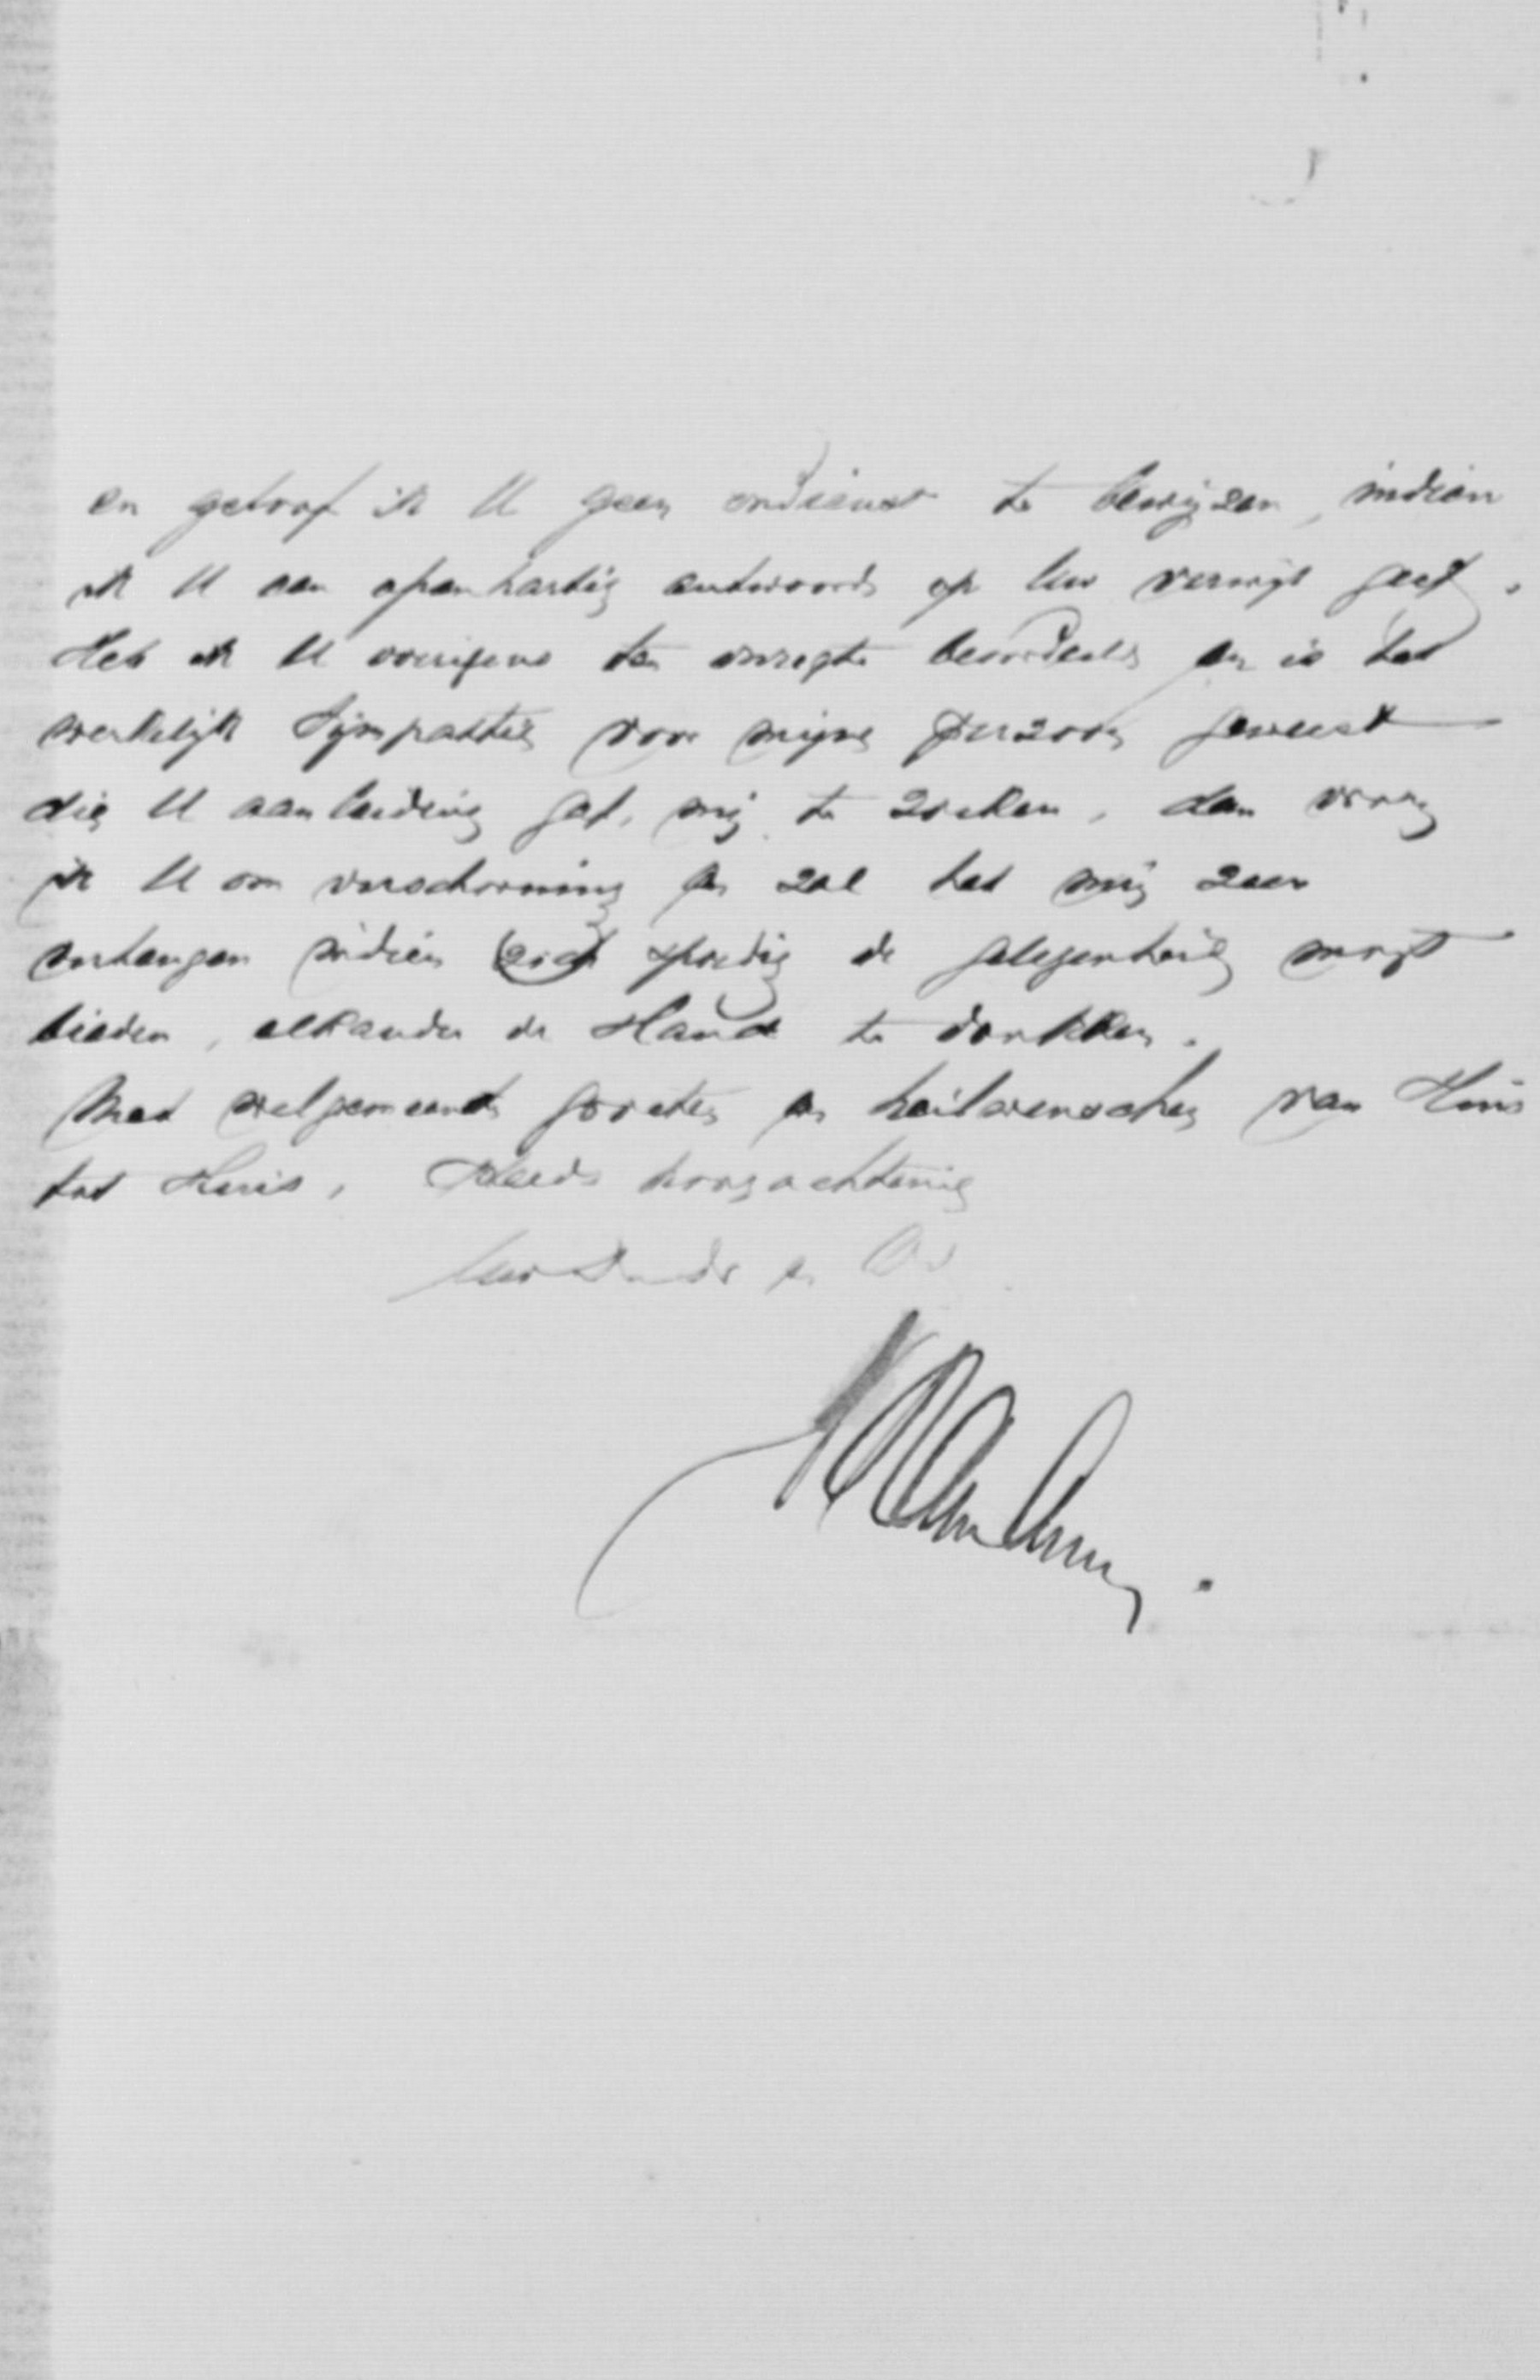 en geloof ik U geen ondienst te bewijzen, indien
ik U een openhartig antwoord op Uw verwijt geef.
Heb ik U overigens ten onregte beoordeeld en is het
werkelijk Sympathie voor mijne persoon geweest
die U aanleiding gaf, mij te zoeken, dan vraag
ik U om verschooning en zal het mij zeer
verheugen indien zich spoedig de gelegenheid mogt
bieden, elkander de Hand te drukken.
Met welgemeende groeten en heilwenschen van Huis
tot Huis, Steeds hoogachtend
Uw